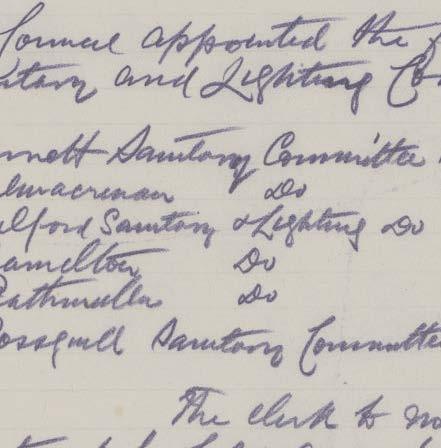 Council appointed the
itary and Lighting Co
nnett Sanitary Committee
lmacrenan Do
ulford Sanitary & Lighting Do
amelton Do
Rathmullan Do
Rossguill Sanitary Committee
The clerk to no